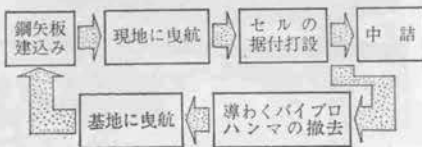 鋼矢板
建込み
現地に曳航
セルの
据付打設
中詰
導わくバイブロ
ハンマの撤去
基地に曳航